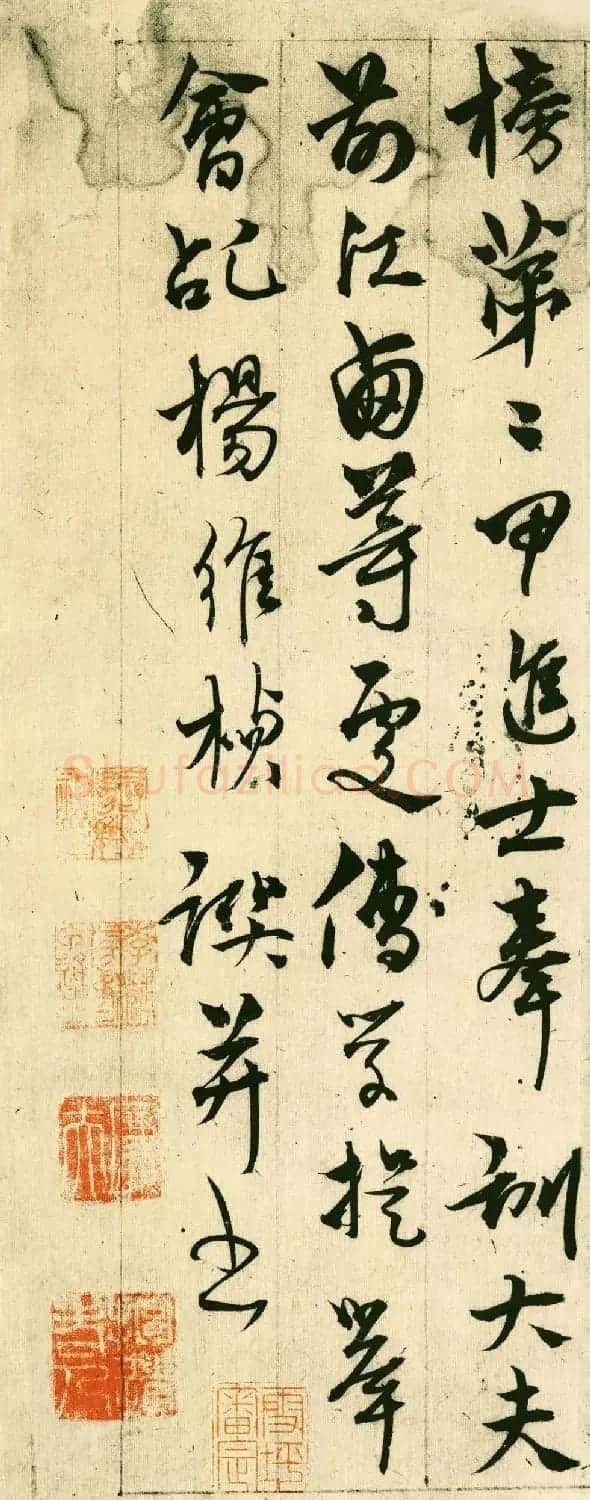 榜第二甲進士奉訓大夫
前江西等處儒學提舉
會稽楊維楨譔并書
Shufaziliao.COM